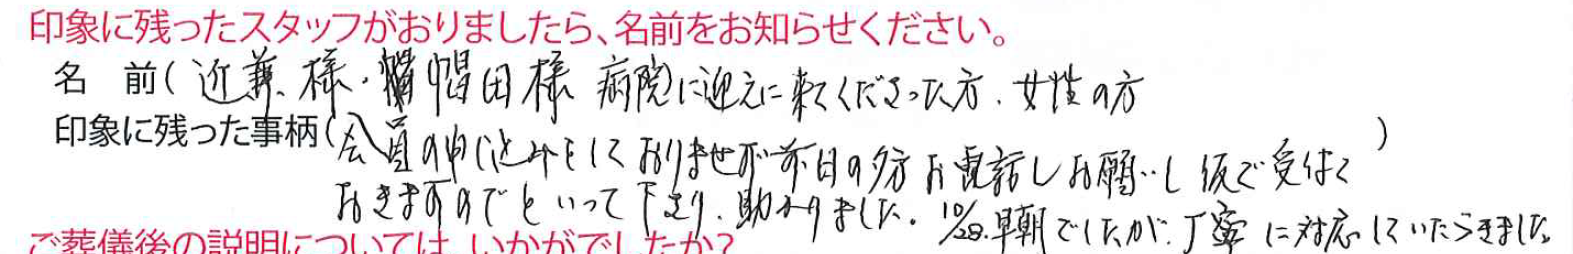 印象に残ったスタッフがおりましたら、名前をお知らせください。
名 前( 近藤 様・幅田様 病院に迎えに来てくださった方、女性の方
印象に残った事柄(会員の申し込みをしておりませが前日の夕方お電話しお願いし仮で受けて )
おきますのでといって下さり、助かりました。10/28.早朝でしたが、丁寧に対応していただきました。
ご葬儀後の説明については、いかがでしたか?